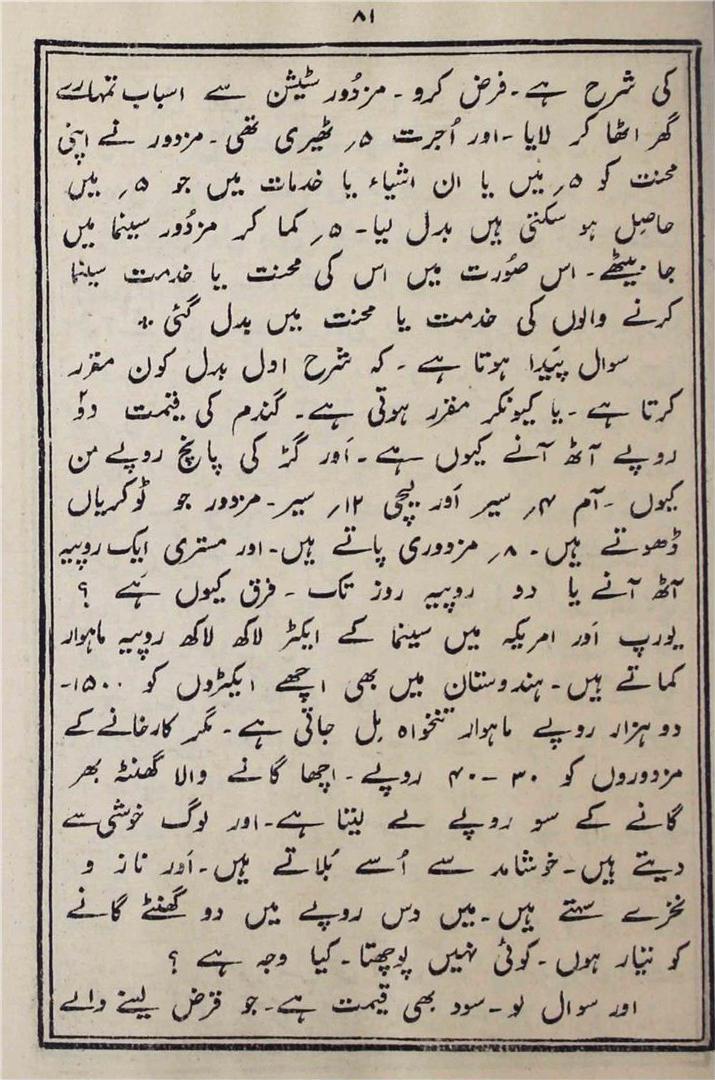 ۸۱
کی شرح ہے۔ فرض کرو۔ مزدُور سٹیشن سے اسباب تمہارے
گھر اٹھا کر لایا۔ اور اُجرت ۵؍ ٹھیری تھی۔ مزدور نے اپنی
محنت کو ۵؍ میں یا ان اشیاء یا خدمات میں جو ۵؍ میں
حاصِل ہو سکتی ہیں بدل لیا۔ ۵؍ کما کر مزدُور سینما میں
جا بیٹھے۔ اس صُورت میں اس کی محنت یا خدمت سینما
کرنے والوں کی خدمت یا محنت میں بدل گئی ۔
سوال پَیدا ہوتا ہے ۔ کہ شرح اول بدل کون مقرر
کرتا ہے ۔ یا کیونکر مقرر ہوتی ہے۔ گندم کی قیمت دوُ
روپے آٹھ آنے کیوں ہے۔ اَور گڑ کی پانچ روپے من
کیوں ۔ آم ۴؍ سیر اَور لیچی ۱۲؍ سیر۔ مزدور جو ٹوکریاں
ڈھوتے ہیں۔ ۸؍ مزدوری پاتے ہیں۔ اور مستری ایک روپیہ
آٹھ آنے یا دو روپیہ روز تک ۔ فرق کیوں ہَے ؟
یورپ اَور امریکہ میں سینما کے ایکٹر لاکھ لاکھ روپیہ ماہوار
کماتے ہیں۔ ہندوستان میں بھی اچھے ایکٹروں کو ۱۵۰۰۔
دو ہزار روپے ماہوار تنخواہ مِل جاتی ہے۔ مگر کارخانے کے
مزدوروں کو ۳۰ – ۴۰ روپے۔ اچھا گانے والا گھنٹہ بھر
گانے کے سو روپے لے لیتا ہے۔ اور لوگ خوشی سے
دیتے ہیں۔ خوشامد سے اُسے بُلاتے ہیں۔ اَور ناز و
نخرے سہتے ہیں۔ میں دس روپے میں دو گھنٹے گانے
کو تیار ہوں۔ کوئی نہیں پوچھتا۔ کیا وجہ ہے ؟
اور سوال لو۔ سود بھی قیمت ہے۔ جو قرض لینے والے